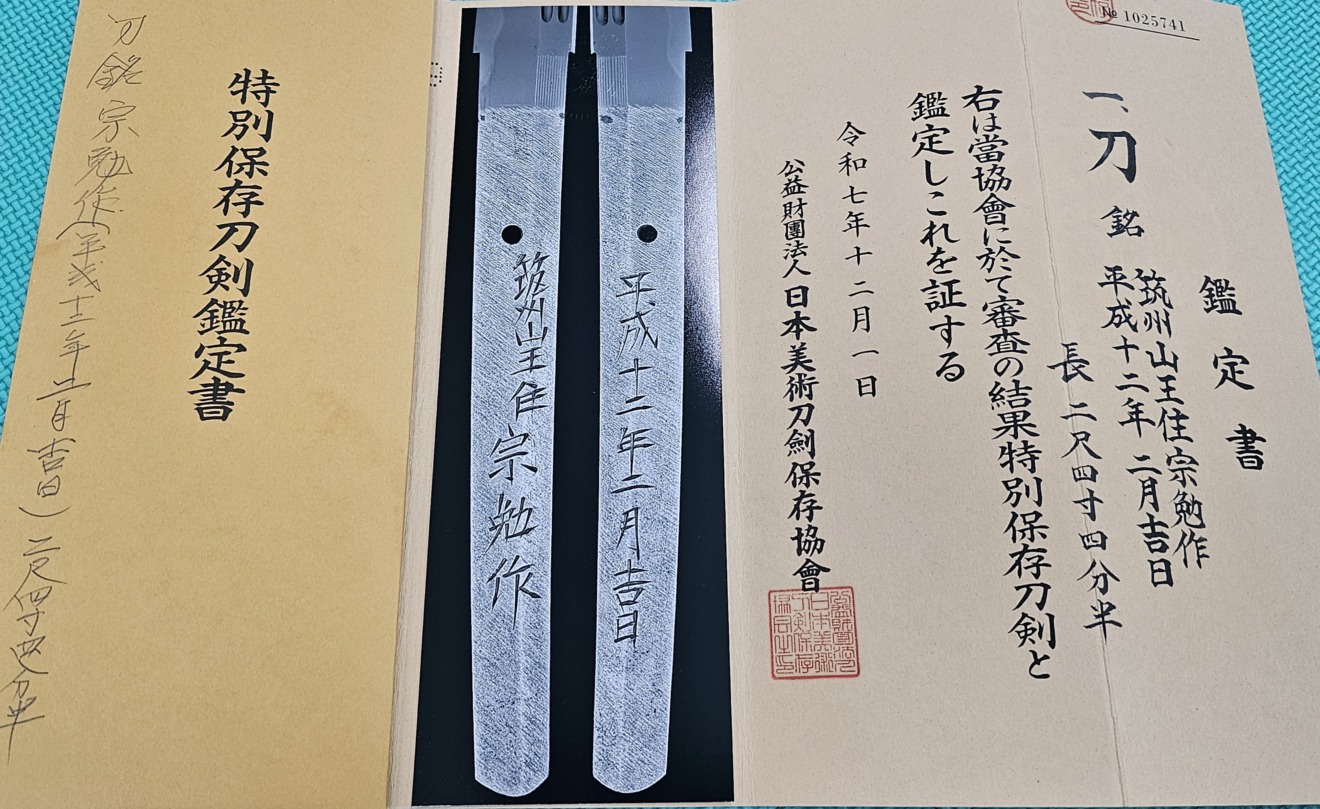 № 1025741
鑑定書
一、刀 銘 筑州山王住宗勉作
平成十二年二月吉日
長 二尺四寸四分半
右は當協會に於て審査の結果特別保存刀剣と
鑑定しこれを証する
令和七年十二月一日
公益財團法人日本美術刀劍保存協會
平成十二年二月吉日
筑州山王住宗勉作
特別保存刀剣鑑定書
刀 銘 宗勉作(平成十二年二月吉日)二尺四寸四分半